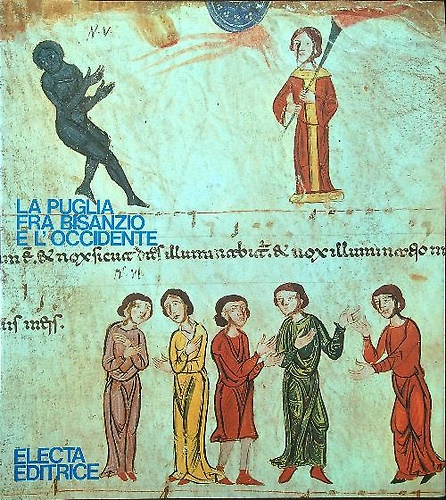 N·V·
LA PUGLIA
FRA BISANZIO
E L'OCCIDENTE
& nox sicut dies illuminabit. & nox illuminatio
N·VI·
meis.
ELECTA
EDITRICE